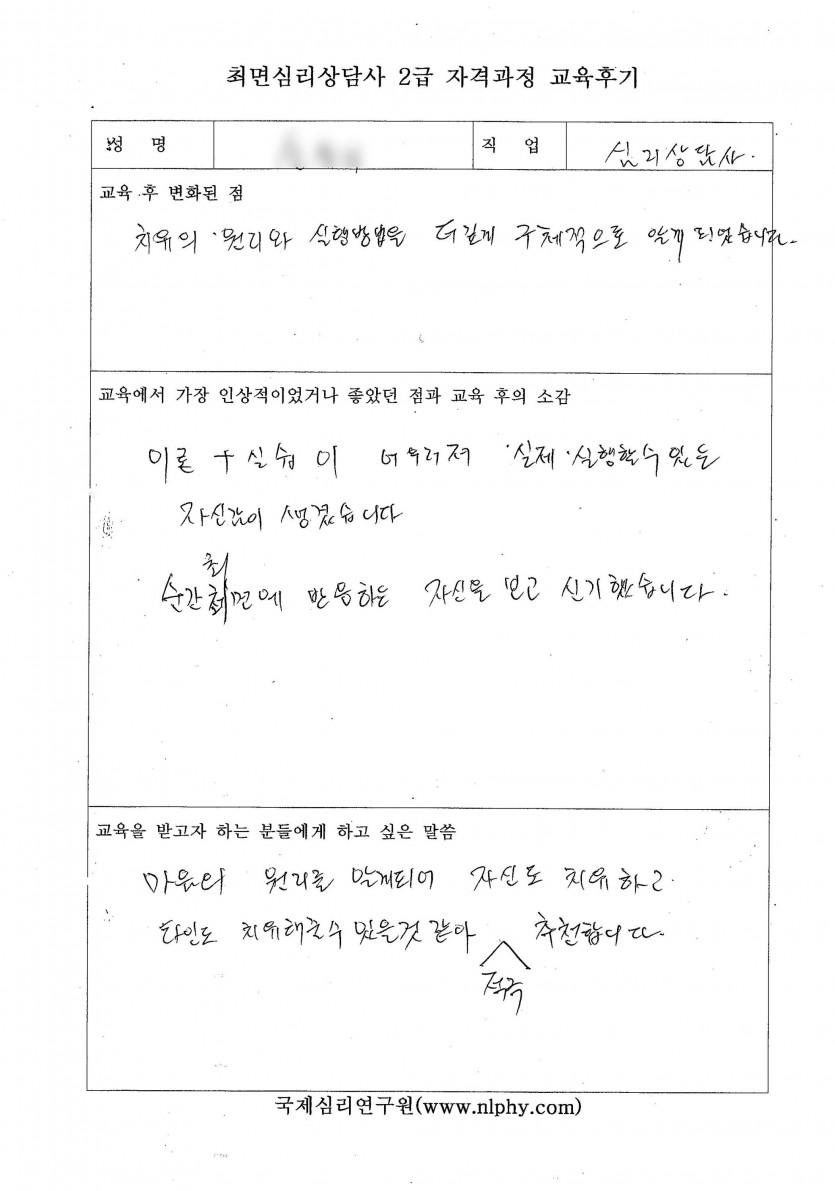 최면심리상담사 2급 자격과정 교육후기
성 명
직 업 심리상담사.
교육 후 변화된 점
치유의 원리와 실행방법을 더깊게 구체적으로 알게 되었습니다.
교육에서 가장 인상적이었거나 좋았던 점과 교육 후의 소감
이론 + 실습이 어우러져 실제 실행할수 있는
자신감이 생겼습니다
순간최면에 반응하는 자신을 보고 신기했습니다.
교육을 받고자 하는 분들에게 하고 싶은 말씀
마음의 원리를 알게되어 자신도 치유하고
타인도 치유해줄수 있을것 같아 적극 추천합니다.
국제심리연구원(www.nlphy.com)